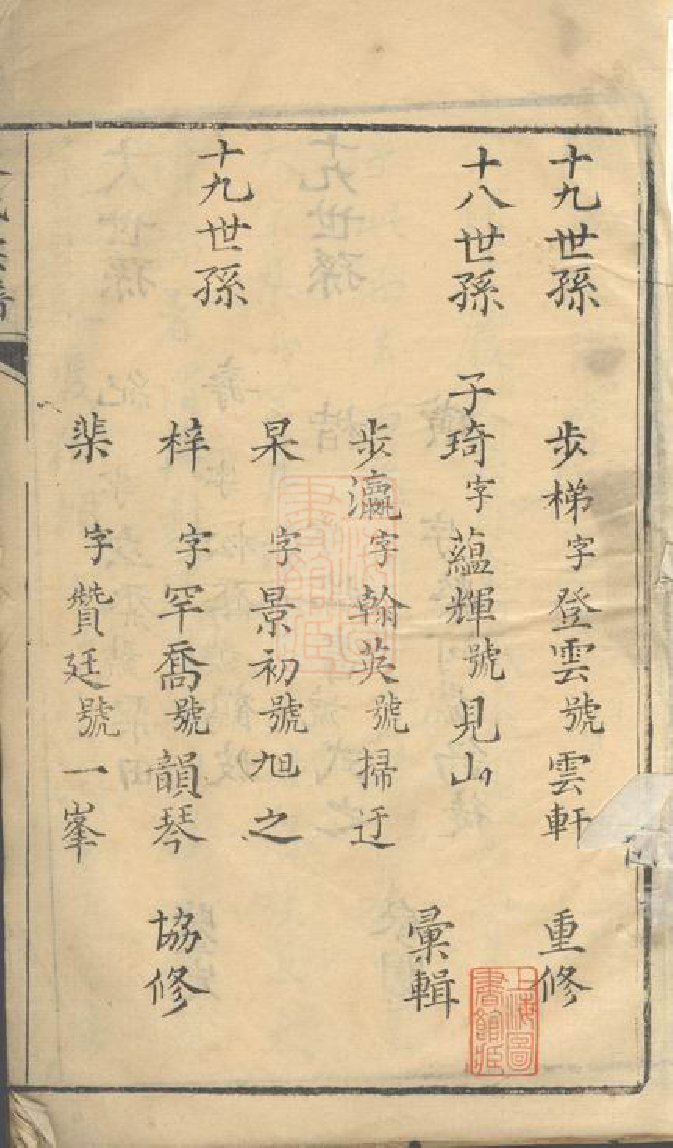 十九世孫 步梯字登雲號雲軒 重修
十八世孫 子琦字蘊輝號見山
步瀛字翰英號掃迂 彙輯
十九世孫 杲字景初號旭之
梓字罕喬號韻琴 協修
棐字贊廷號一峯
上海圖書館藏